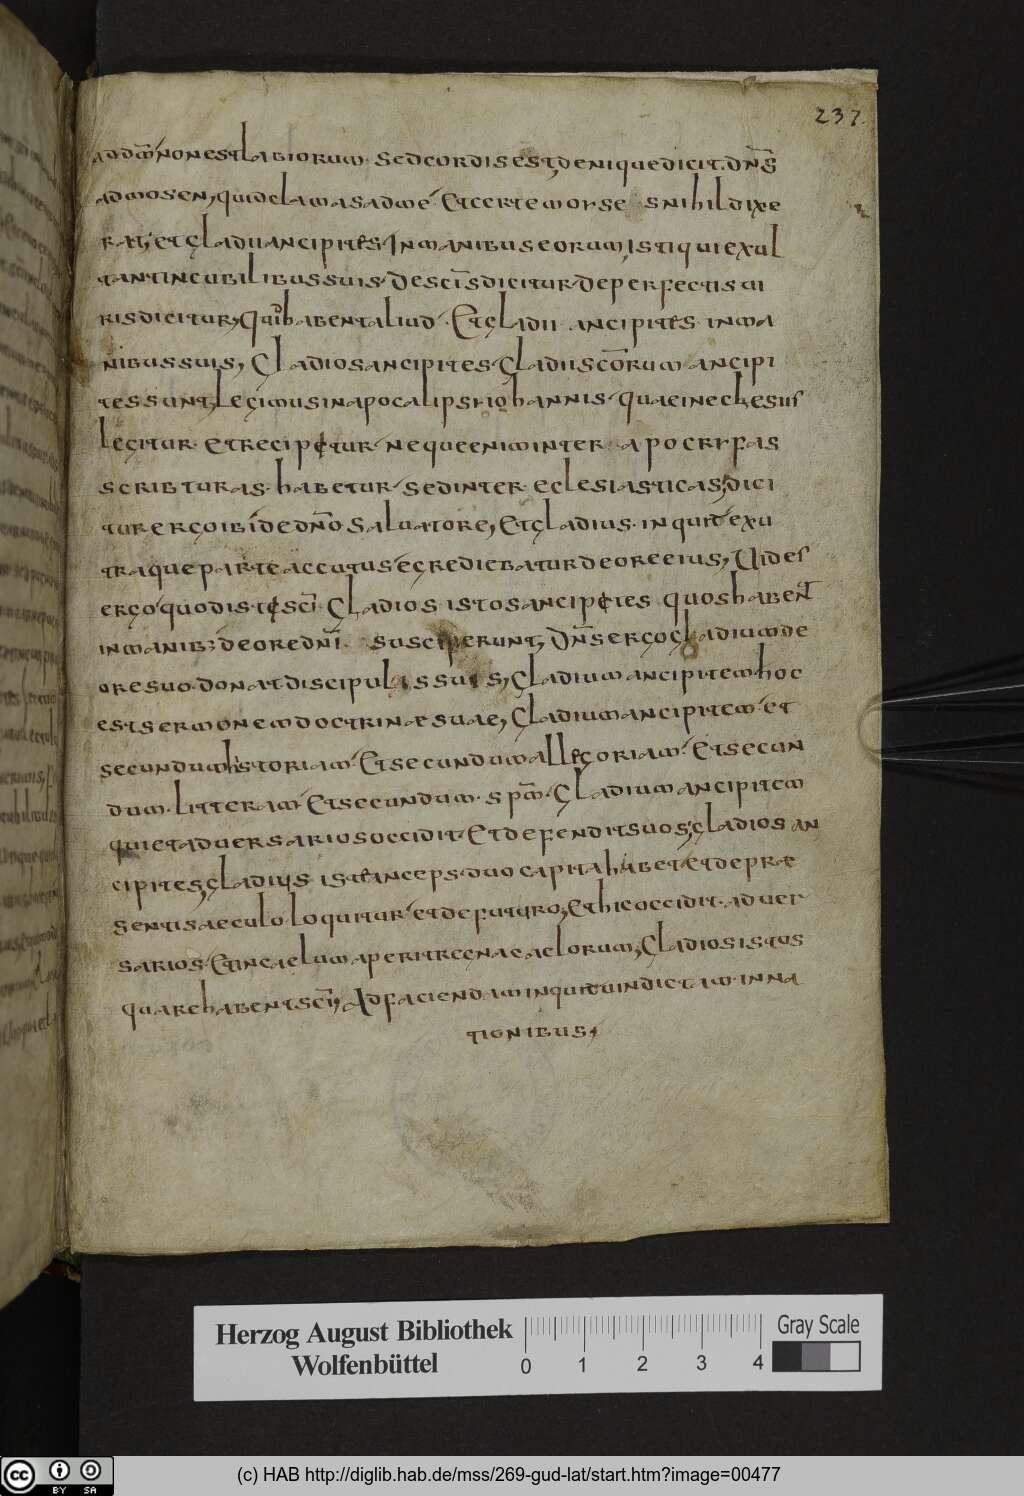 237.
ad dm̄ non est labiorum sed cordis est; denique dicit dn̄s
ad mosen, quid clamas ad me Et certe moyses nihil dixe
rat; et gladii ancipites In manibus eorum, isti qui exul
tant in cubilibus suis De scīs dicitur De perfectis ui
ris dicitur, Quid habent aliud Et gladii ancipites in ma
nibus suis, Gladios ancipites gladii scōrum ancipi
tes sunt, legimus in apocalipsi iohannis quae in eclesiis
legitur et recipitur neque enim inter apocrifas
scribturas habetur sed inter eclesiasticas; dici
tur ergo ibi de dn̄o saluatore, Et gladius inquit ex u
traque parte accutus egrediebatur de ore eius, Uides
ergo quod isti scī Gladios istos ancipites quos habent
in manib; de ore dn̄i susciperunt, Dn̄s ergo gladium de
ore suo donat discipulis suis, Gladium ancipitem hoc
est sermonem doctrinae suae, Gladium ancipitem et
secundum historiam Et secundum allegoriam Et secun
dum litteram Et secundum spm̄ Gladium ancipitem
qui et aduersarios occidit Et defendit suos; gladios an
cipites, gladius iste anceps duo capita habet et de prae
senti saeculo loquitur et de futuro, Et hic occidit aduer
sarios Et in caelum aperit regna caelorum, Gladios istos
quare habent scī, Ad faciendam inquit uindictam in na
tionibus,
Herzog August Bibliothek
Wolfenbüttel
0 1 2 3 4
Gray Scale
cc BY SA
(c) HAB http://diglib.hab.de/mss/269-gud-lat/start.htm?image=00477